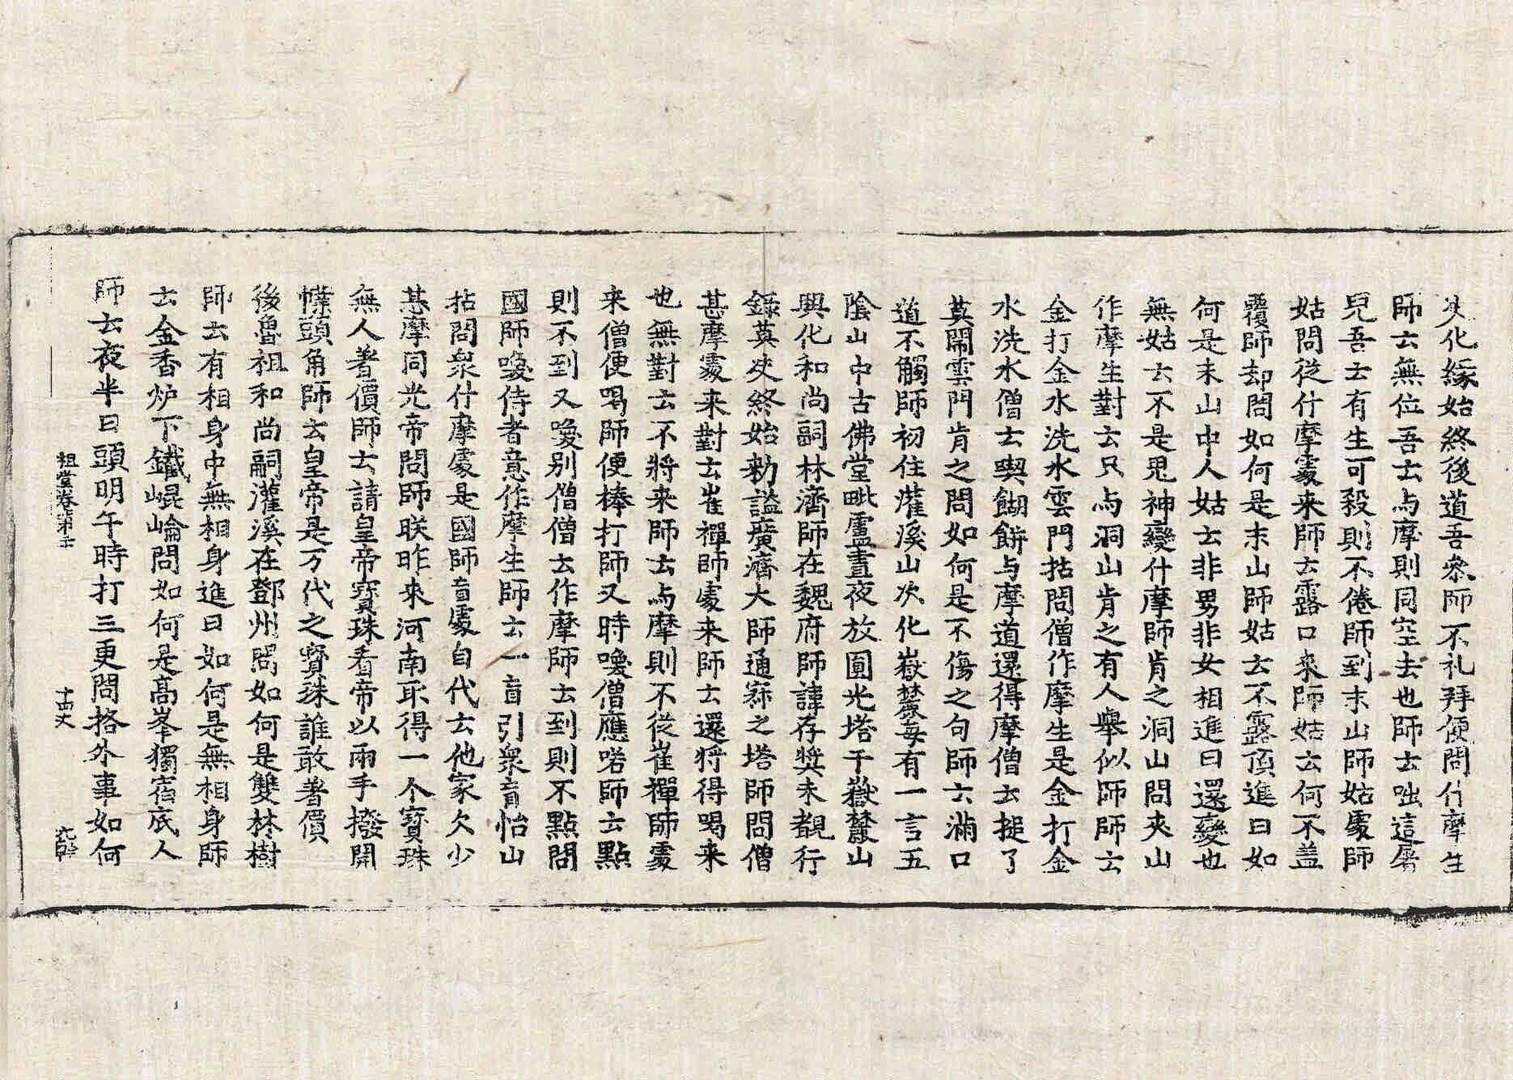 決化緣始終後道吾參師不礼拜便問什摩生
師云無位吾云与摩則同空去也師云咄這屠
兒吾云有生可殺則不倦師到末山師姑處師
姑問從什摩處來師云露口來師姑云何不盖
覆師却問如何是末山師姑云不露頂進曰如
何是末山中人姑云非男非女相進曰還變也
無姑云不是鬼神變什摩師肯之洞山問夾山
作摩生對云只与摩洞山肯之有人舉似師師云
金打金水洗水雲門拈問僧作摩生是金打金
水洗水僧云喫餬餅与摩道還得摩僧云搥了
莫閙雲門肯之問如何是不傷之句師云滿口
道不觸師初住灌溪山次化嶽麓每有一言五
陰山中古佛堂毗盧晝夜放圓光塔于嶽麓山
興化和尚嗣林濟師在魏府師諱存奬未覩行
錄莫決終始勑謚廣濟大師通寂之塔師問僧
甚摩處来對云崔禪師處来師云還將得喝来
也無對云不將来師云与摩則不從崔禪師處
来僧便喝師便棒打師又時喚僧應喏師云點
則不到又喚别僧僧云作摩師云到則不點問
國師喚侍者意作摩生師云一盲引衆盲怡山
拈問衆什摩處是國師盲處自代云他家欠少
甚摩同光帝問師朕昨来河南取得一个寳珠
無人著價師云請皇帝寳珠看帝以兩手撥開
幞頭角師云皇帝是万代之寳珠誰敢著價
後魯祖和尚嗣灌溪在鄧州問如何是雙林樹
師云有相身中無相身進曰如何是無相身師
云金香炉下鐵崐崘問如何是髙峯獨宿底人
師云夜半日頭明午時打三更問格外事如何
祖堂卷第二十 十四丈